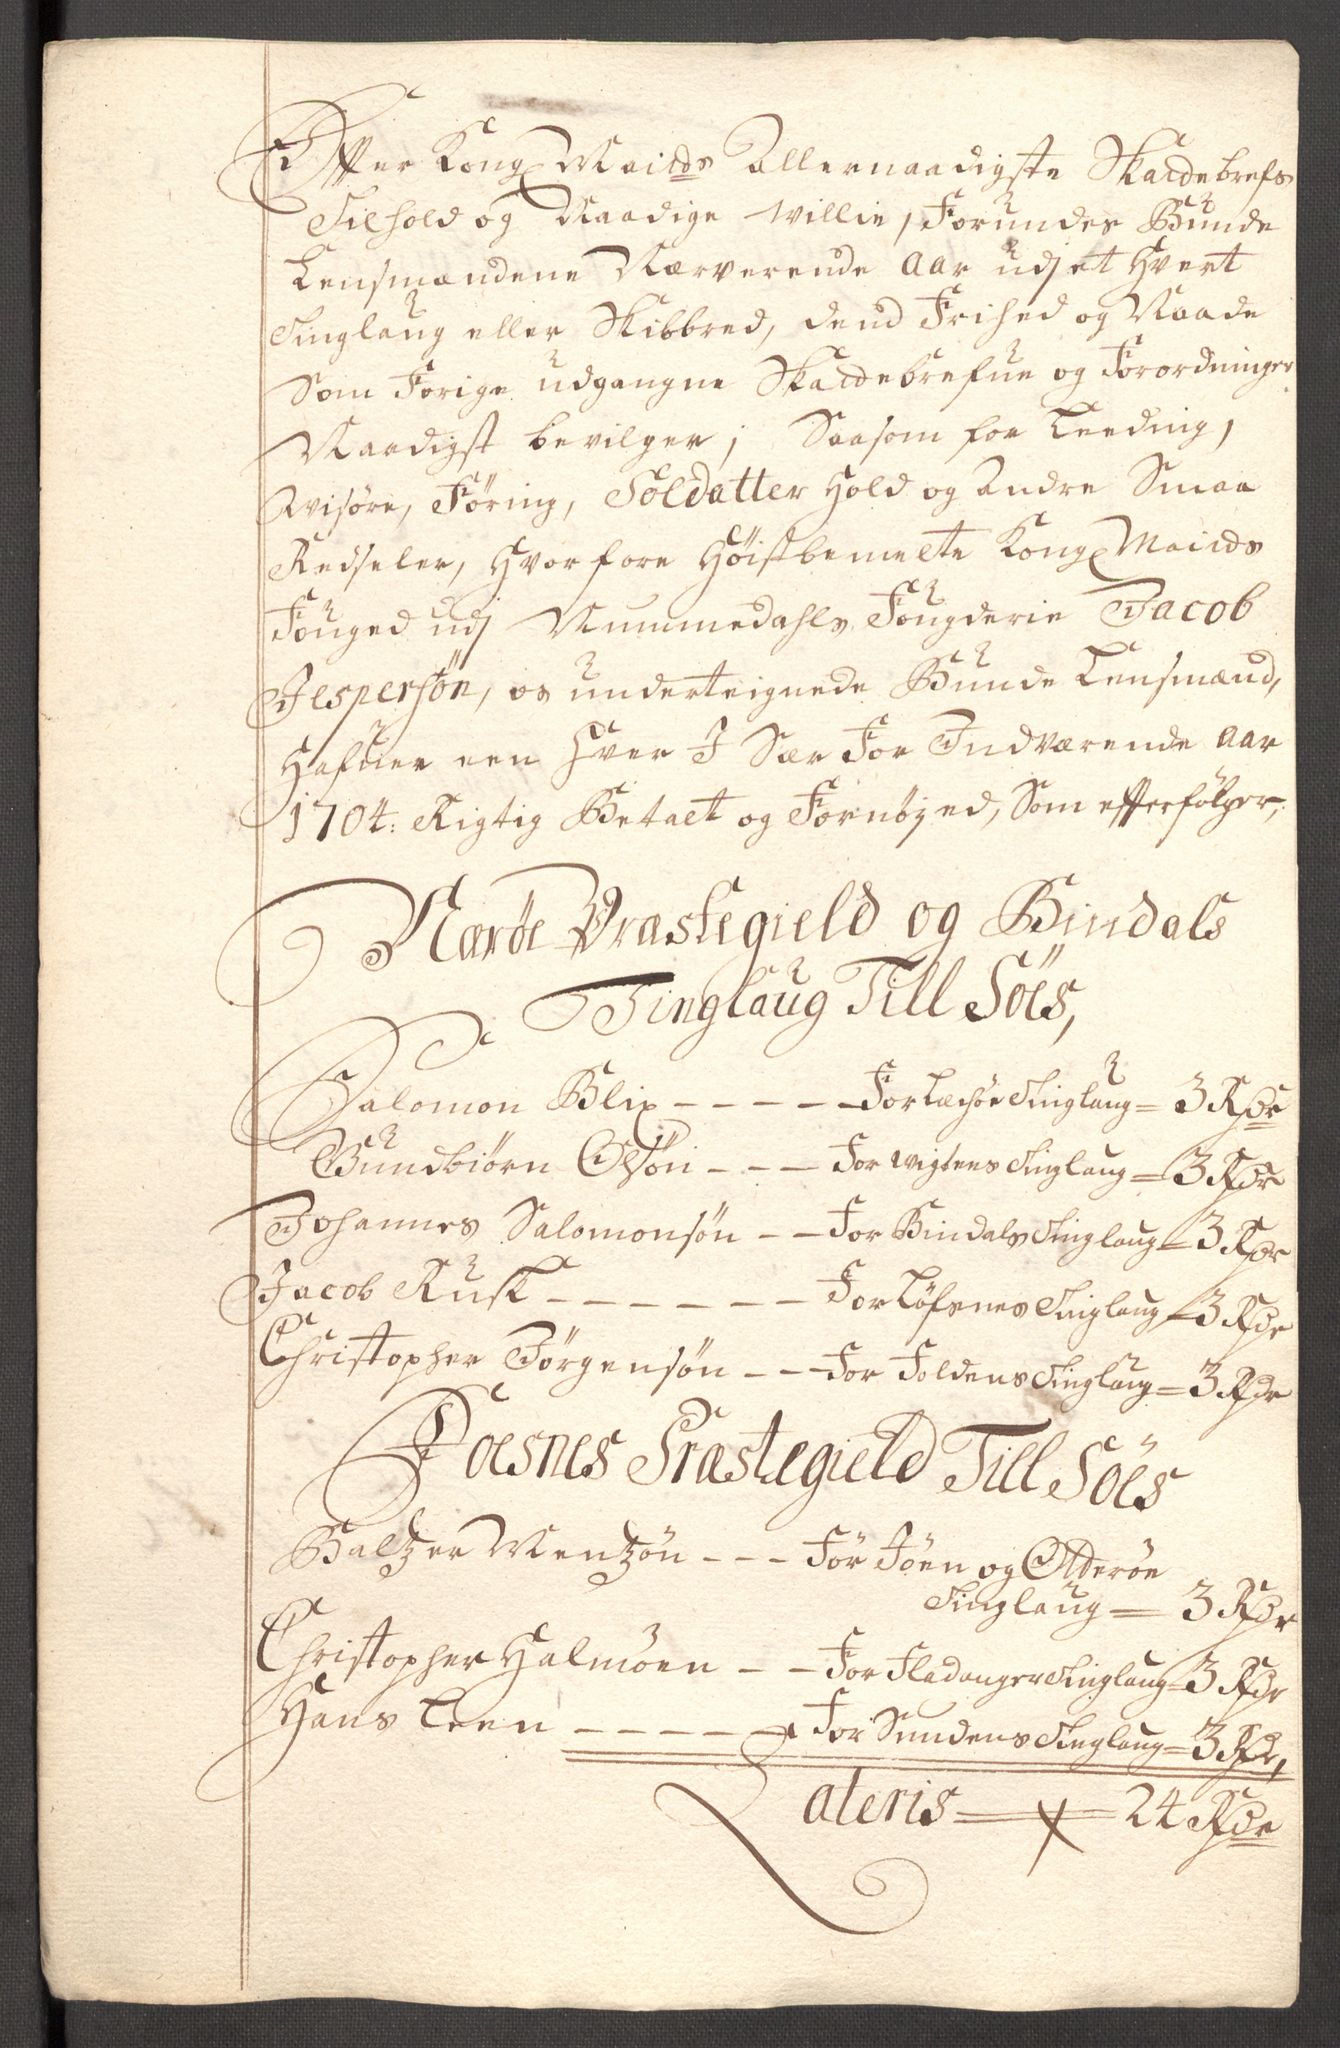 Effter Kong Maits Allernaadigste Skattebrefs
Tilhold og Naadige Willie, Forundes Bunde
Lensmændene Nærverende Aar udj et Hvert
Tinglaug eller Skibbred, dend Frihed og Naade
Som Forige udgangne Skattebrefue og Forordninger
Naadigst bevilger; Saasom for Leeding,
Wisøre, Føring, Soldatter Hold og Andre Smaa
Redseler, Hvorfore Høistbemelte Kong Maits
Fouged udj Nummedahls Fougderie Jacob
Jespersøn, os underteignede Bunde Lensmænd,
Hafuer een Hver J Sær For Indværende Aar
1704: Rigtig Betalt og Fornøyed, Som efferfølger,
Nærøe Præstegield og Bindals
Tinglaug Till Søes,
Salomon Blix - - - - - For Lechøe Tinglaug = 3 Rdr
Gundbiørn Olsøn - - - For Wigtens Tinglaug = 3 Rdr
Johannes Salomonsøn - - For Bindals Tinglaug = 3 Rdr
Jacob Rusk - - - - - - - For Løfsnes Tinglaug = 3 Rdr
Christopher Jørgensøn - - For Foldens Tinglaug = 3 Rdr
Foesnes Præstegield Till Søes
Baltzer Mentzøn - - - Før Jøen og Otterøe
Tinglaug = 3 Rdr
Christopher Halmøen - - For Fladanger Tinglaug = 3 Rdr
Hans Leen - - - - - - For Sundens Tinglaug = 3 Rdr,
Lateris = 24 Rdr